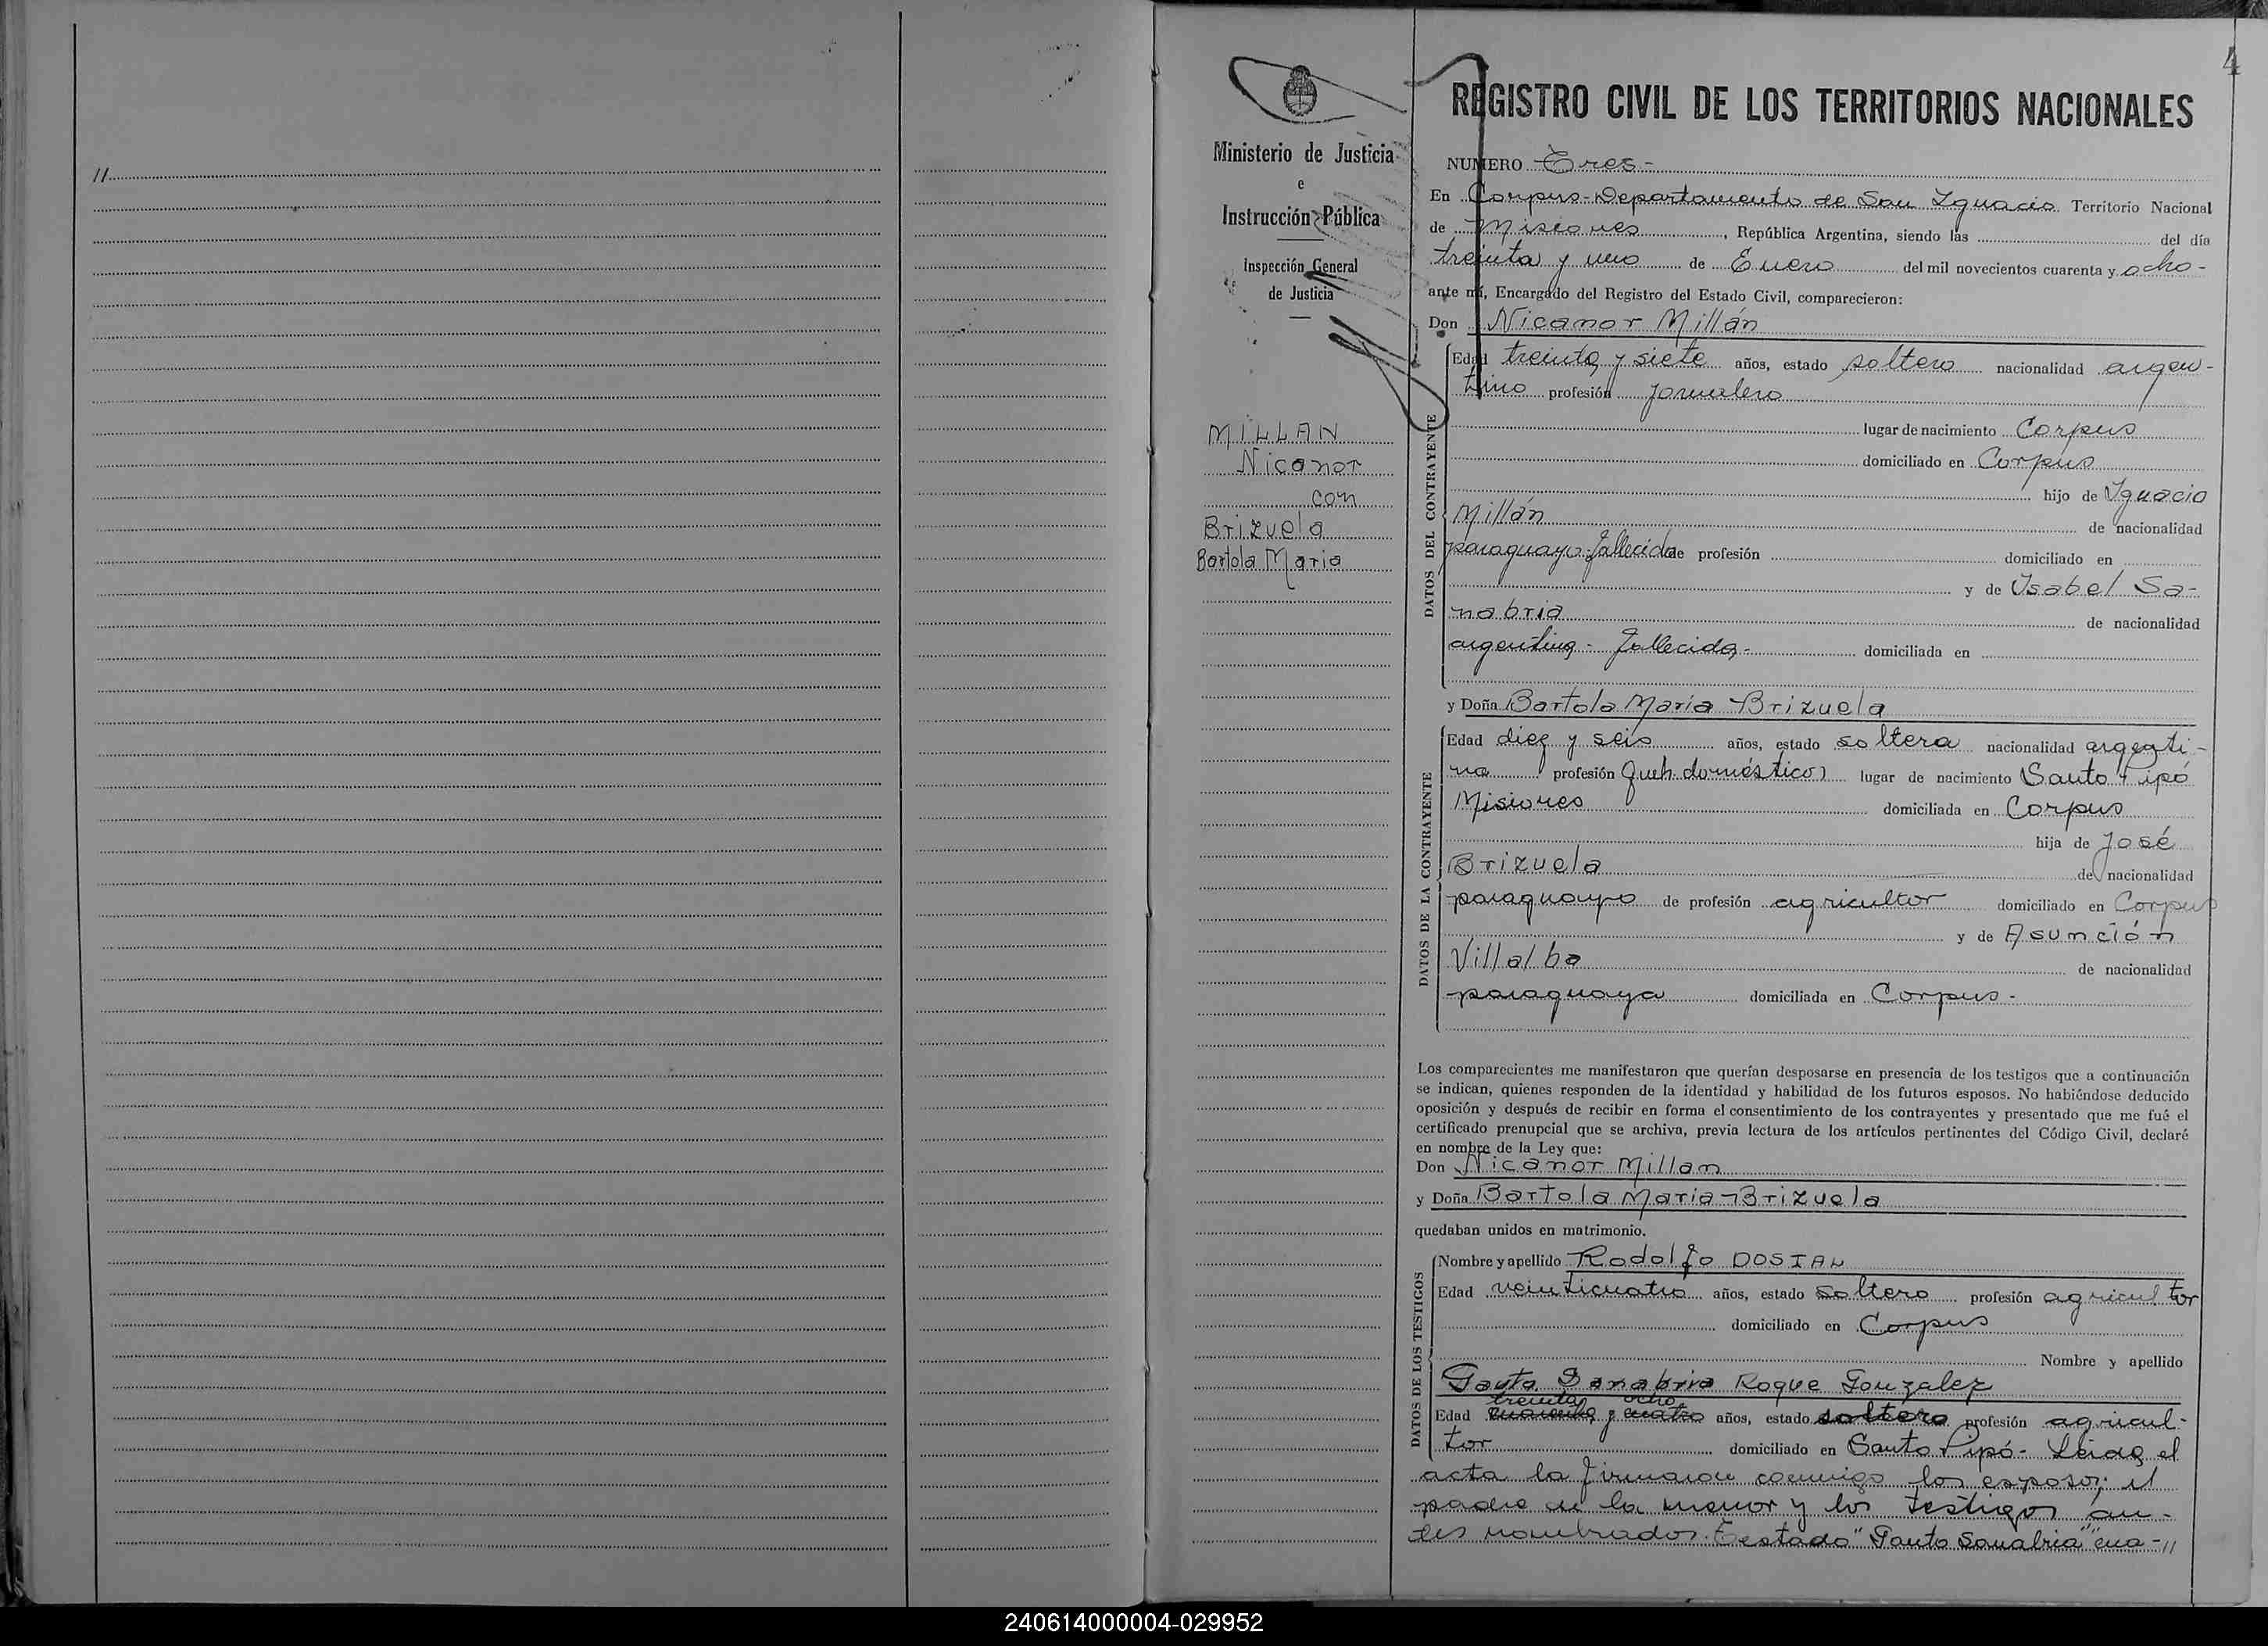 4
REGISTRO CIVIL DE LOS TERRITORIOS NACIONALES
Ministerio de Justicia
e
Instrucción Pública
Inspección General
de Justicia
MILLAN
Nicanor
con
Brizuela
Bartola Maria
//
NUMERO Tres-
En Corpus-Departamento de San Ignacio Territorio Nacional
de Misiones, República Argentina, siendo las del día
treinta y uno de Enero del mil novecientos cuarenta y ocho-
ante mí, Encargado del Registro del Estado Civil, comparecieron:
Don Nicanor Millán
DATOS DEL CONTRAYENTE
Edad treinta y siete años, estado soltero nacionalidad argen-
tino profesión jornalero
lugar de nacimiento Corpus
domiciliado en Corpus
hijo de Ignacio
Millán de nacionalidad
paraguayo-fallecido de profesión domiciliado en
y de Isabel Sa-
nabria de nacionalidad
argentina- fallecida- domiciliada en
y Doña Bartola María Brizuela
DATOS DE LA CONTRAYENTE
Edad diez y seis años, estado soltera nacionalidad argenti-
na profesión Queh. domésticos lugar de nacimiento Santo Pipó
Misiones domiciliada en Corpus
hija de José
Brizuela de nacionalidad
paraguayo de profesión agricultor domiciliado en Corpus
y de Asunción
Villalba de nacionalidad
paraguaya domiciliada en Corpus-
Los comparecientes me manifestaron que querían desposarse en presencia de los testigos que a continuación
se indican, quienes responden de la identidad y habilidad de los futuros esposos. No habiéndose deducido
oposición y después de recibir en forma el consentimiento de los contrayentes y presentado que me fué el
certificado prenupcial que se archiva, previa lectura de los artículos pertinentes del Código Civil, declaré
en nombre de la Ley que:
Don Nicanor Millan
y Doña Bartola Maria Brizuela
quedaban unidos en matrimonio.
DATOS DE LOS TESTIGOS
Nombre y apellido Rodolfo DOSTAL
Edad veinticuatro años, estado soltero profesión agricultor
domiciliado en Corpus
Nombre y apellido
Santo Sanabria Roque Gonzalez
treinta ocho
Edad cuarenta y cuatro años, estado soltero profesión agricul-
tor domiciliado en Santo Pipó- Leida el
acta la firmaron conmigo los esposos, el
padre de la menor y los testigos an-
tes nombrados. Testado "Santo Sanabria" "cua-//
240614000004-029952